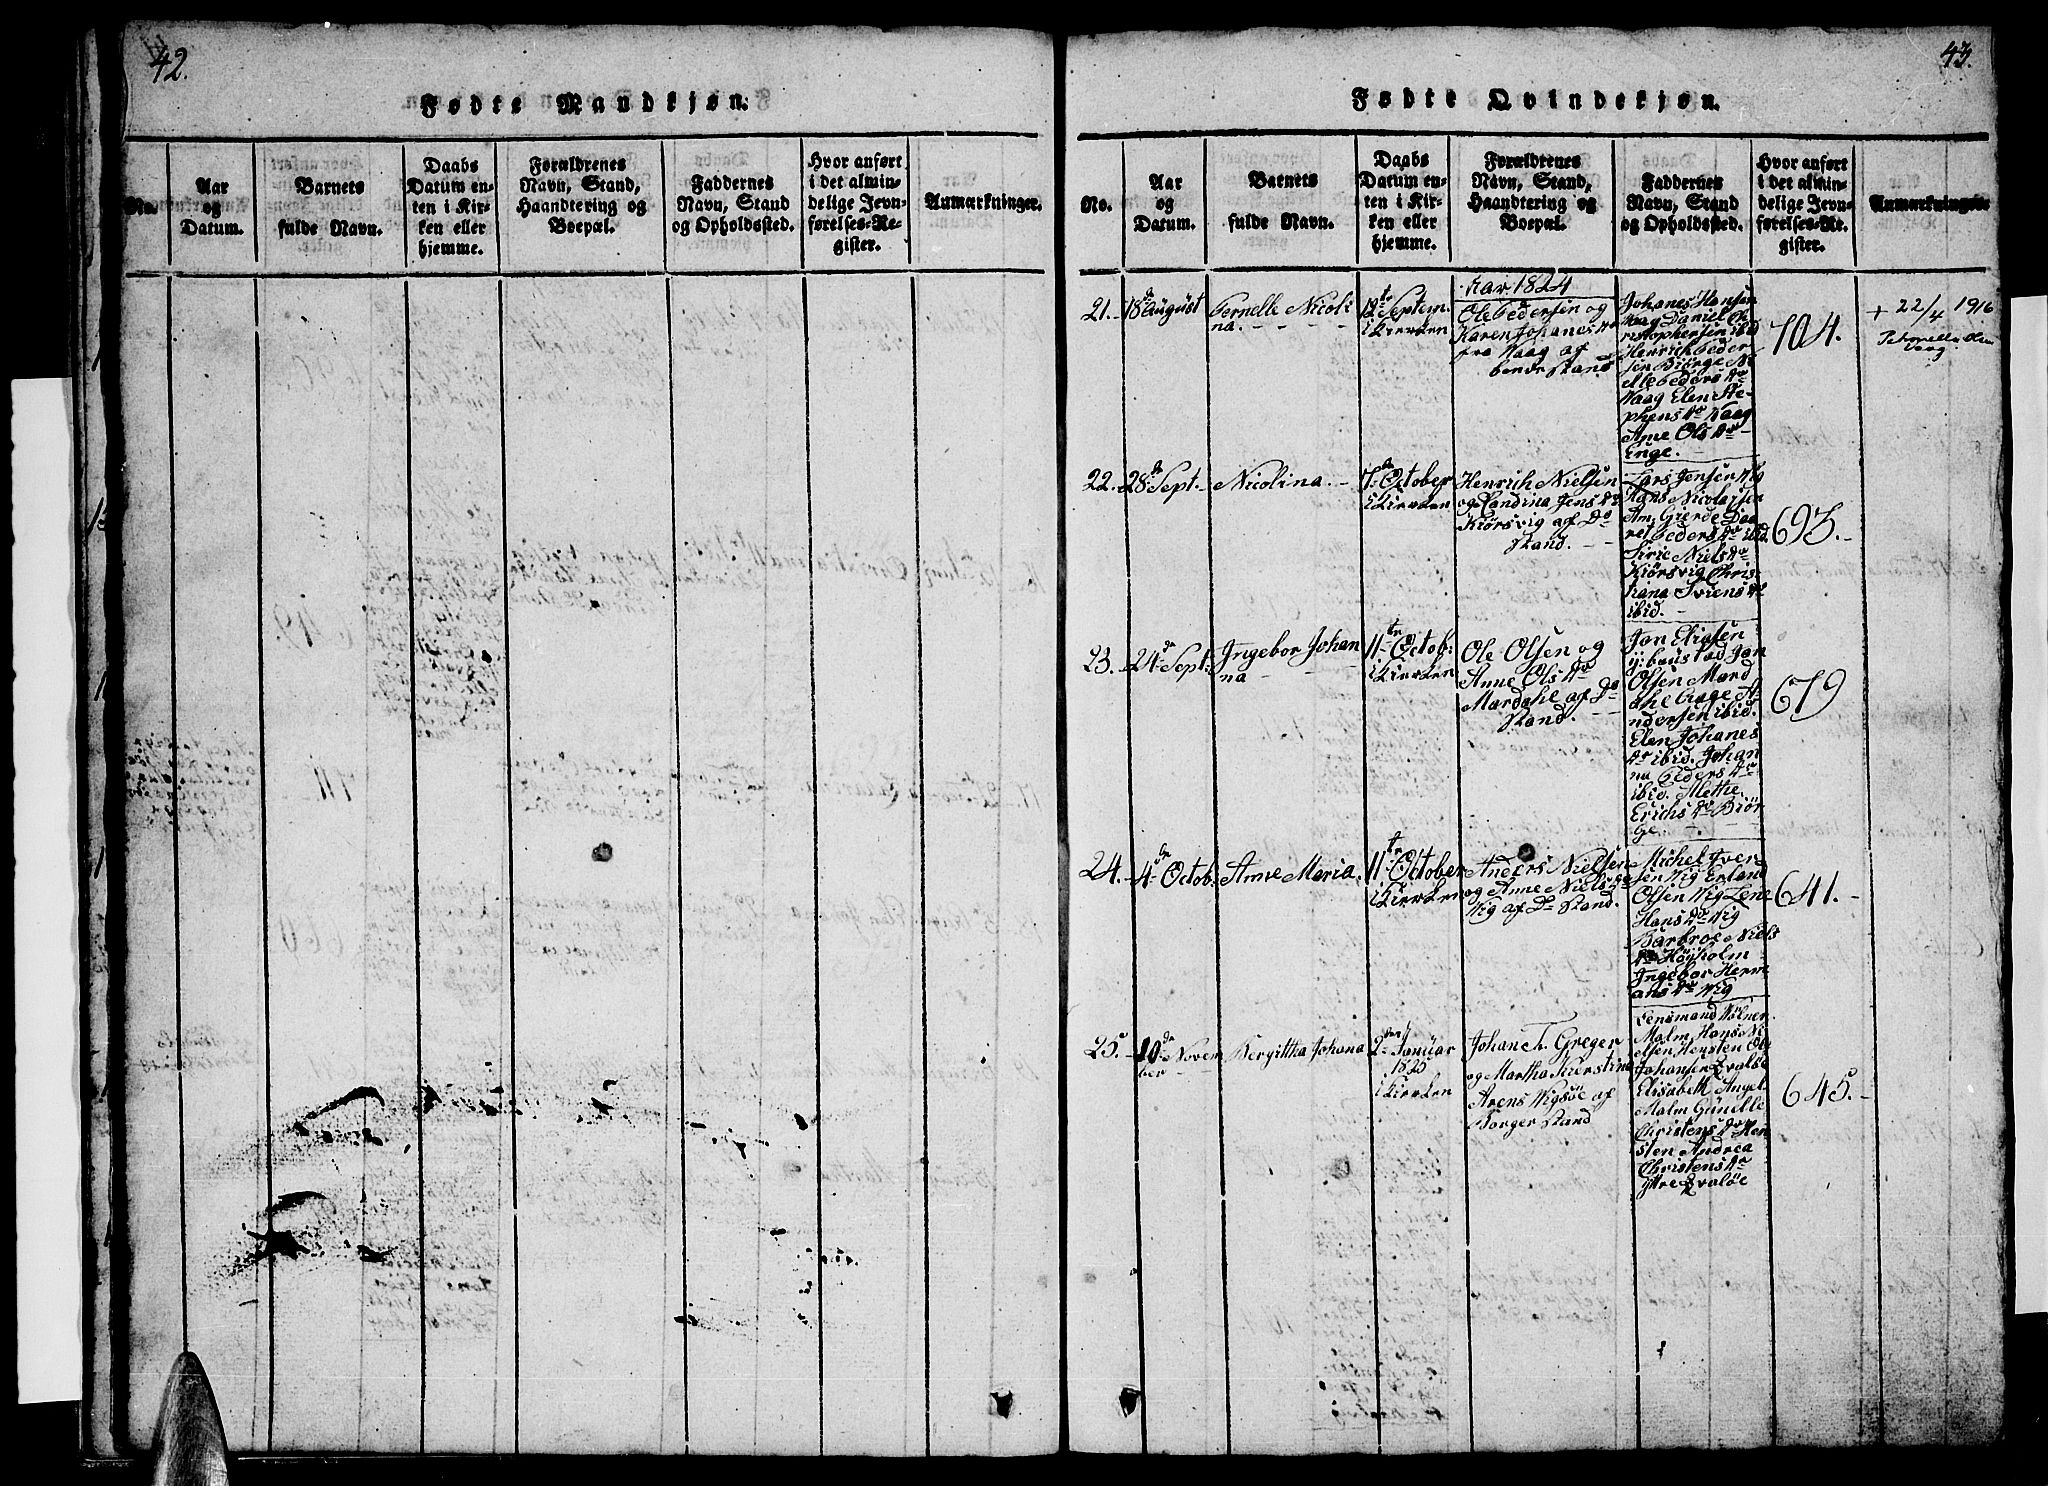 42.
Fødte Mandkjøn.
No.
Aar
og
Datum.
Barnets
fulde Navn.
Daabs
Datum en-
ten i Kir-
ken eller
hjemme.
Forældrenes
Navn, Stand,
Haandtering og
Boepæl.
Faddernes
Navn, Stand
og Opholdssted.
Hvor anført
i det almin-
delige Jevn-
førelses-Re-
gister.
Anmærkninger.
43.
Fødte Qvindekjøn.
No.
Aar
og
Datum.
Barnets
fulde Navn.
Daabs
Datum en-
ten i Kir-
ken eller
hjemme.
Forældrenes
Navn, Stand,
Haandtering og
Boepæl.
Faddernes
Navn, Stand
og Opholdssted.
Hvor anført
i det almin-
delige Jevn-
førelses-Re-
gister.
Anmærkninger.
Aar 1824
21.
18de August
Pernelle Nicoli
na.
12te Septem.
i Kierken
Ole Pedersen og
Karen Johanesdr
fra Vaag af
bondestand
Johanes Hansen
Vaag Daniel Ch
ristophersen ibid
Henrich Peder
sen Biørge
Pedersdr
Vaag Elen Ste-
phensdr Vaag
Ane Olsdr
Enge.
704.
+ 22/4 1916
22.
28de Sept.
Nicolina.
7de October
i Kierken
Henrich Nielsen
og Jensdr
Kiørsvig af Do
Stand.
Lars Jensen Vig
Hans Nicolaisen
Gierde
Pedersdr ibid.
Sirie Nielsdr
Kiørsvig Chris-
tiana Ivensdr
ibid.
693.
23.
24de Sept:
Ingebor Johan
na
11te Octob:
i Kierken
Ole Olsen og
Anne Olsdr
Mardahl af Do
Stand.
Jon Eliasen
Jon
Olsen Mard
ahl Aage A-
ndersen ibid.
Elen Johanes
dr ibid. Johan
na Pedersdr
ibid. Methe
Erichsdr Biør
ge.
679
24.
4de Octob:
Anne Maria.
11te October
i Kierken
Anders Nielsen
og Anne Nielsdr
Vig af Do Stand.
Michel Iver
sen Vig Erland
Olsen Vig Lene
Hansdr Vig
Barbroe Niels
dr Høyholm
Ingebor Herm
ansdr Vig
641.
25.
10de Novem
ber
Bergittha Johana
2den Januar
1825
i Kierken
Johan T. Greger
og Martha Kierstine
Arens Vigsøe af
Borger Stand
Lensmand
Malm Hans Ni
elsen Hensten Ole
Johansen Qvaløe
Elisabeth Angel
Malm Gunelle
Christensdr Hen
sten Andrea
Christensdr
Ytre Qvaløe
645.